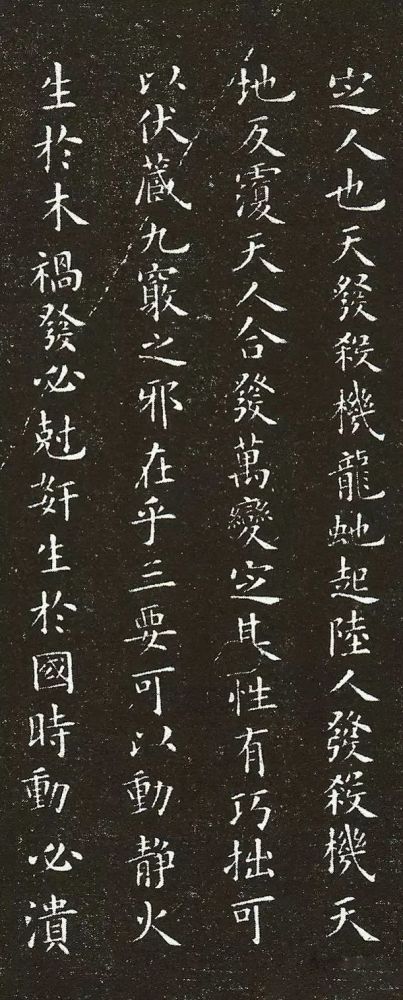 定人也天發殺機龍虵起陸人發殺機天
地反覆天人合發萬變定其性有巧拙可
以伏藏九竅之邪在乎三要可以動静火
生於木禍發必尅姧生於國時動必潰